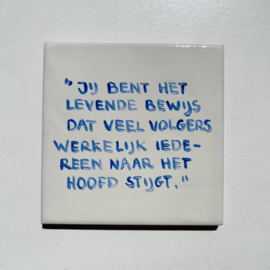 "JIJ BENT HET
LEVENDE BEWIJS
DAT VEEL VOLGERS
WERKELIJK IEDE-
REEN NAAR HET
HOOFD STIJGT."